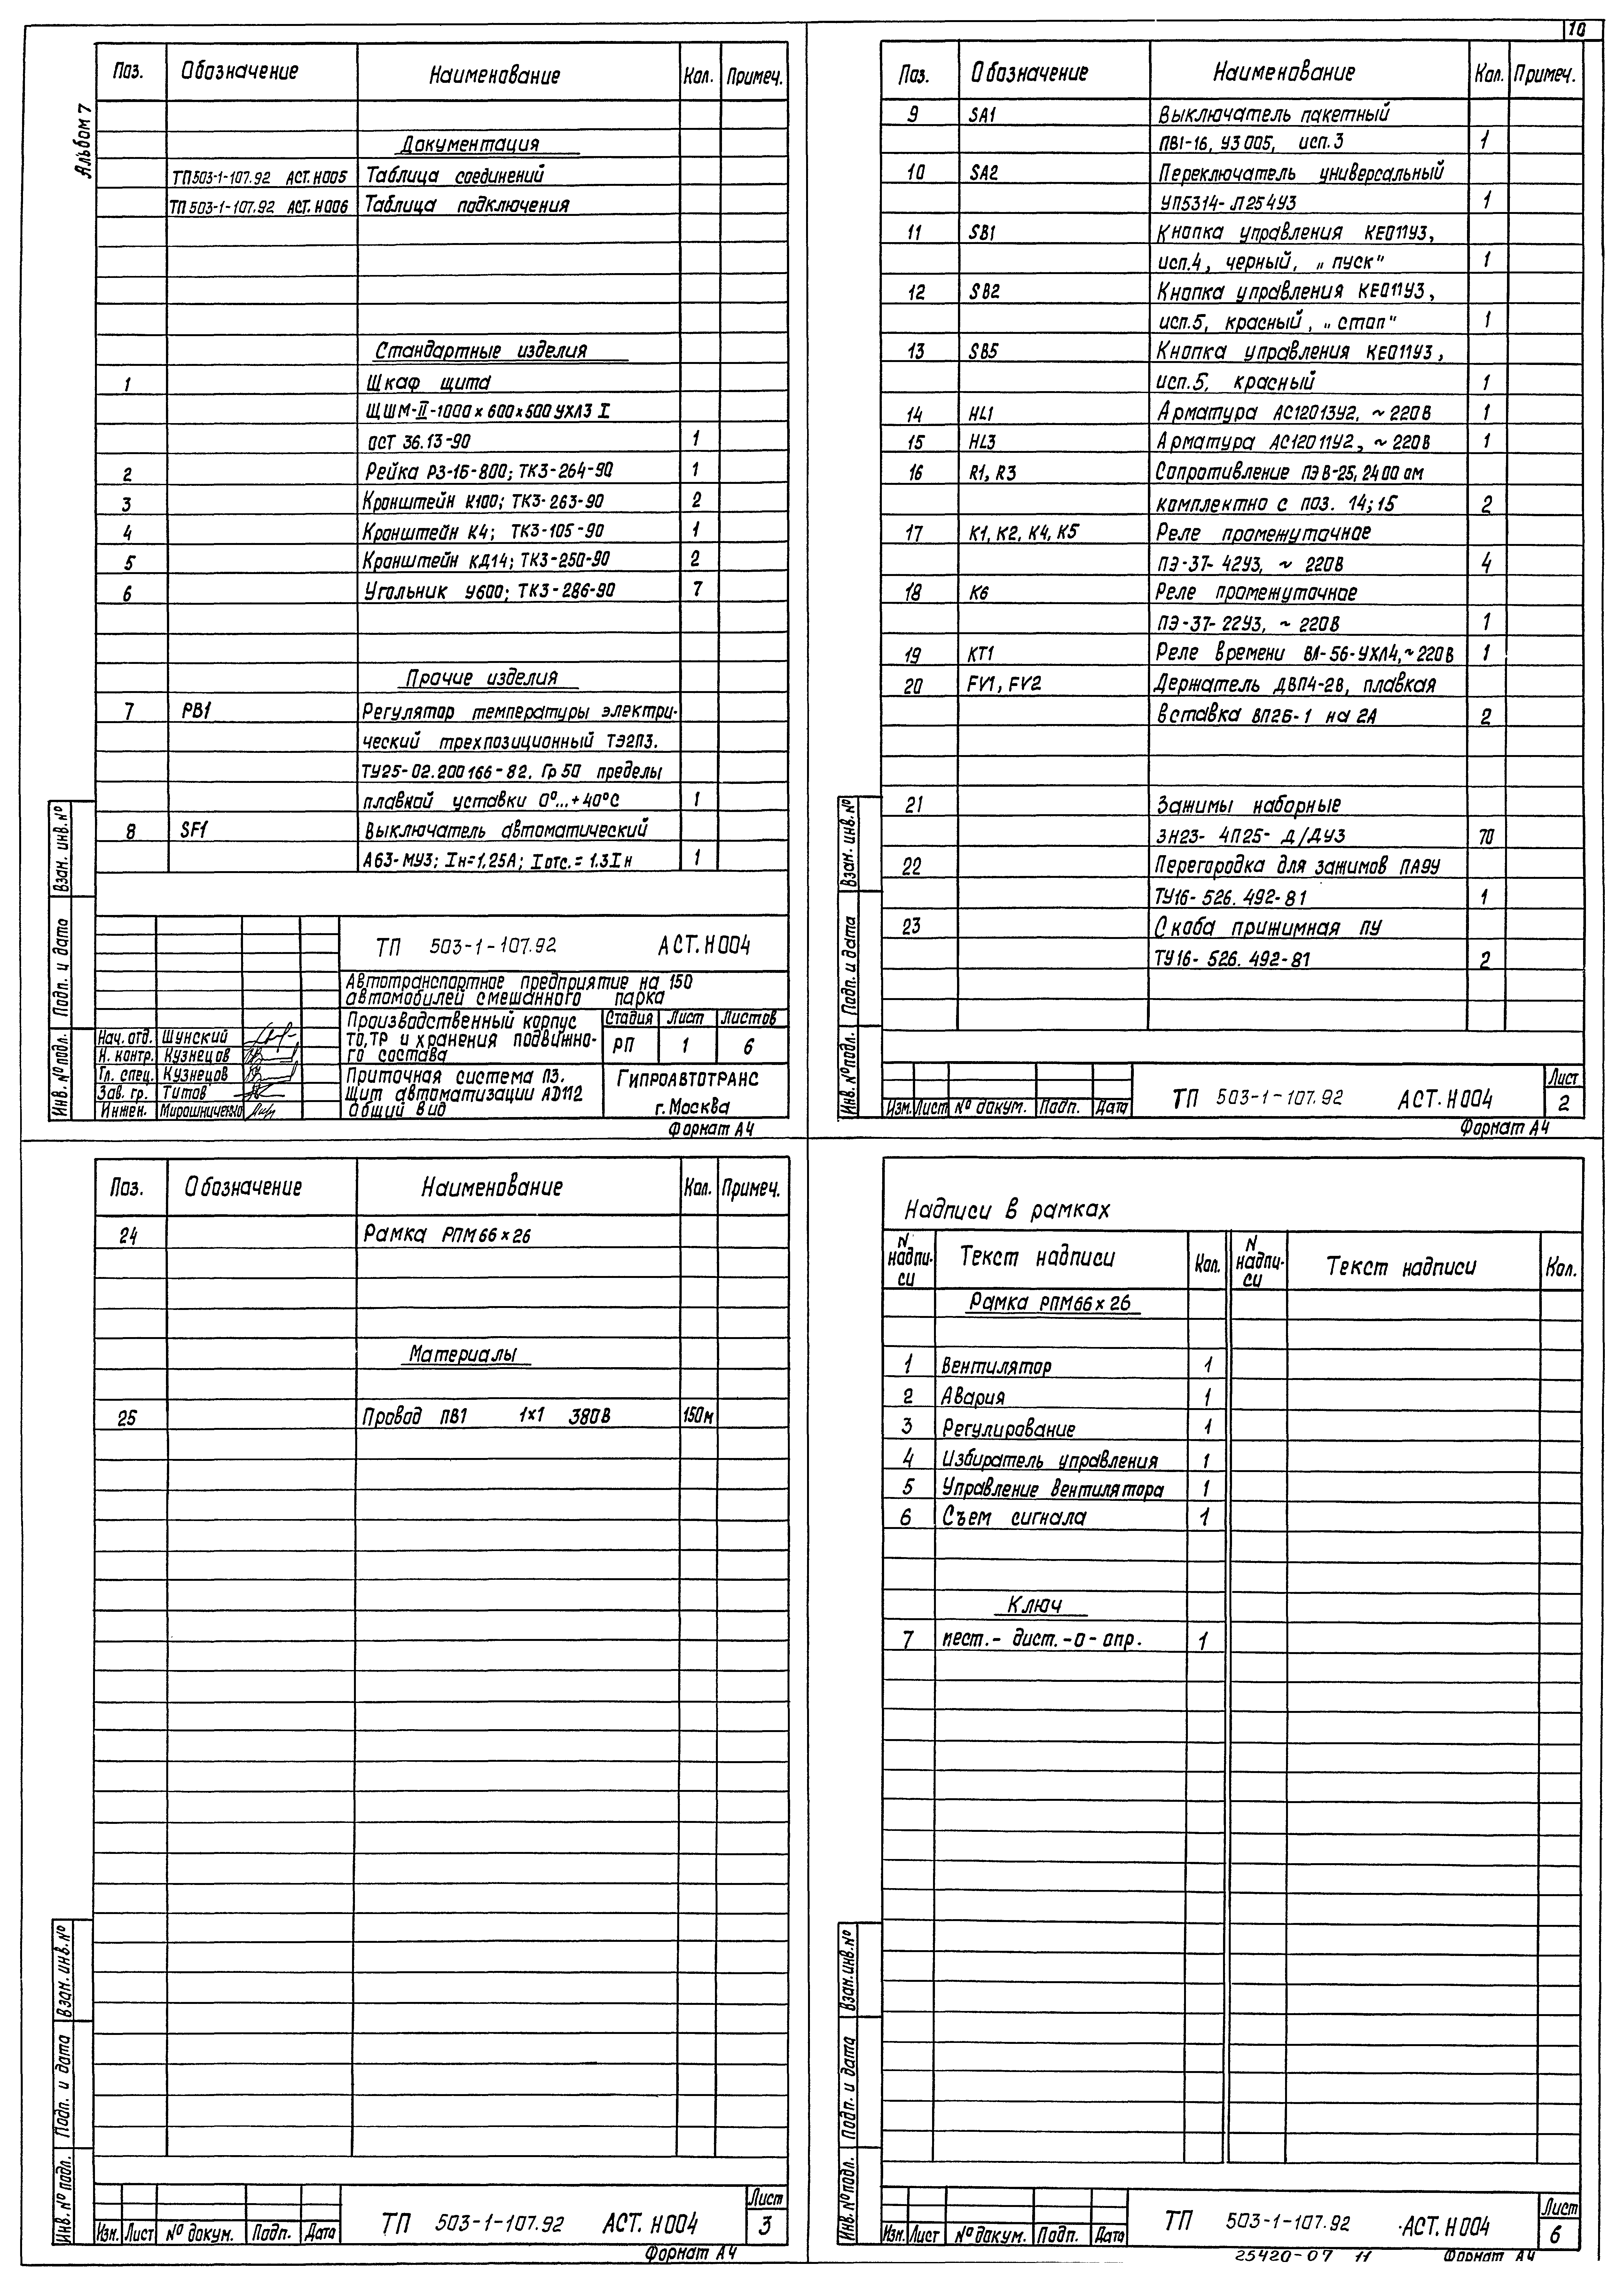 10
Альбом 7
Поз. Обозначение Наименование Кол. Примеч.
Документация
ТП 503-1-107.92 АСТ.Н005 Таблица соединений
ТП 503-1-107.92 АСТ.Н006 Таблица подключения
Стандартные изделия
1 Шкаф щита
ЩШМ-II-1000×600×500 УХЛ3 I
ОСТ 36.13-90 1
2 Рейка Р3-16-800; ТК3-264-90 1
3 Кронштейн К100; ТК3-263-90 2
4 Кронштейн К4; ТК3-105-90 1
5 Кронштейн КД14; ТК3-250-90 2
6 Угольник У600; ТК3-286-90 7
Прочие изделия
7 РВ1 Регулятор температуры электри-
ческий трехпозиционный ТЭ2П3.
ТУ25-02.200166-82. Гр 50 пределы
плавной уставки 0°...+40°С 1
8 SF1 Выключатель автоматический
А63-МУ3; Iн=1,25А; Iотс.=1.3Iн 1
ТП 503-1-107.92 АСТ.Н004
Автотранспортное предприятие на 150
автомобилей смешанного парка
Производственный корпус
ТО,ТР и хранения подвижно-
го состава
Стадия Лист Листов
РП 1 6
Нач. отд. Шунский
Н. контр. Кузнецов
Гл. спец. Кузнецов
Зав. гр. Титов
Инжен. Мирошниченко
Приточная система П3.
Щит автоматизации AD112
Общий вид
ГИПРОАВТОТРАНС
г. Москва
Взам. инв. №
Подп. и дата
Инв. № подл.
Формат А4
Поз. Обозначение Наименование Кол. Примеч.
9 SA1 Выключатель пакетный
ПВ1-16, У3 005, исп. 3 1
10 SA2 Переключатель универсальный
УП5314-Л254У3 1
11 SB1 Кнопка управления КЕ011У3,
исп.4, черный, „пуск" 1
12 SB2 Кнопка управления КЕ011У3,
исп.5, красный, „стоп" 1
13 SB5 Кнопка управления КЕ011У3,
исп.5, красный 1
14 HL1 Арматура АС12013У2, ~220В 1
15 HL3 Арматура АС12011У2, ~220В 1
16 R1, R3 Сопротивление ПЭВ-25, 2400 ом
комплектно с поз. 14; 15 2
17 К1, К2, К4, К5 Реле промежуточное
ПЭ-37-42У3, ~ 220В 4
18 К6 Реле промежуточное
ПЭ-37-22У3, ~ 220В 1
19 КТ1 Реле времени ВЛ-56-УХЛ4, ~220В 1
20 FV1, FV2 Держатель ДВП4-2В, плавкая
вставка ВП2Б-1 на 2А 2
21 Зажимы наборные
ЗН23-4П25-Д/ДУ3 70
22 Перегородка для зажимов ПАЭУ
ТУ16-526.492-81 1
23 Скоба прижимная ПУ
ТУ16-526.492-81 2
Взам. инв. №
Подп. и дата
Инв. № подл.
Изм. Лист № докум. Подп. Дата
ТП 503-1-107.92 АСТ.Н004
Лист
2
Формат А4
Поз. Обозначение Наименование Кол. Примеч.
24 Рамка РПМ 66×26
Материалы
25 Провод ПВ1 1×1 380В 150м
Взам. инв. №
Подп. и дата
Инв. № подл.
Изм. Лист № докум. Подп. Дата
ТП 503-1-107.92 АСТ.Н004
Лист
3
Формат А4
Надписи в рамках
N надпи-си Текст надписи Кол. N надпи-си Текст надписи Кол.
Рамка РПМ66×26
1 Вентилятор 1
2 Авария 1
3 Регулирование 1
4 Избиратель управления 1
5 Управление вентилятора 1
6 Съем сигнала 1
Ключ
7 мест.- дист.-о-опр. 1
Взам. инв. №
Подп. и дата
Инв. № подл.
Изм. Лист № докум. Подп. Дата
ТП 503-1-107.92 АСТ.Н004
Лист
6
25420-07 11 Формат А4